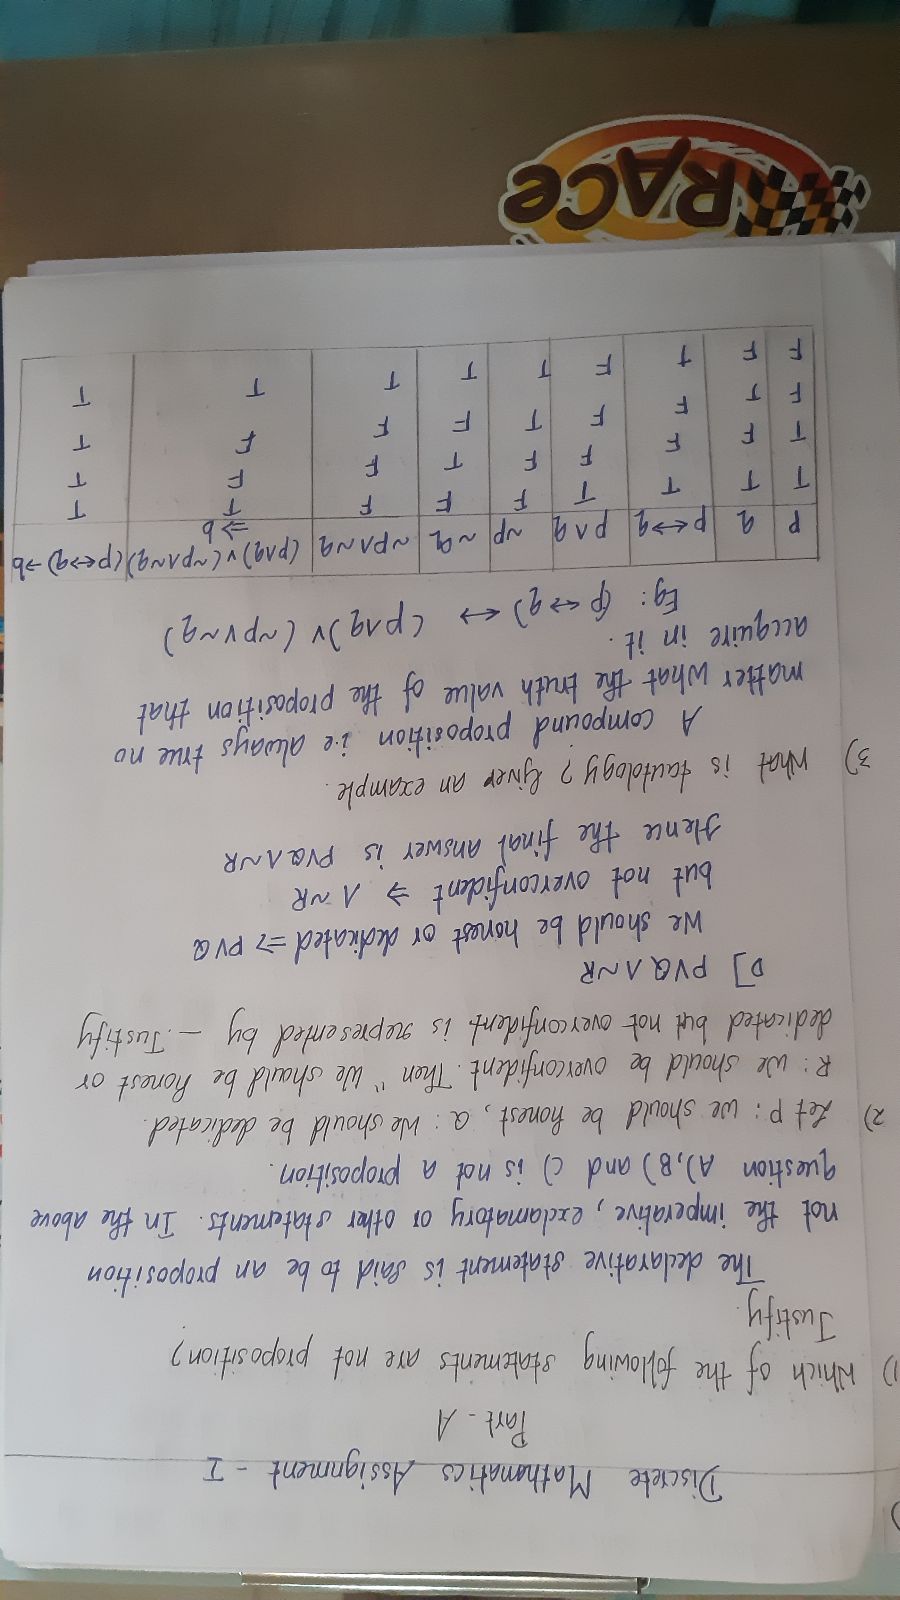 Discrete Mathematics Assignment - I
Part - A
1) Which of the following statements are not proposition?
Justify.
The declarative statement is said to be an proposition
not the imperative, exclamatory or other statements. In the above
question A), B) and C) is not a proposition.
2) Let P: we should be honest, Q: We should be dedicated.
R: we should be overconfident. Then "We should be honest or
dedicated but not overconfident is represented by — Justify.
D] PVQΛ~R
We should be honest or dedicated ⇒ PVQ
but not overconfident ⇒ Λ~R
Hence the final answer is PVQΛ~R
3) What is tautology? Given an example.
A compound proposition i.e always true no
matter what the truth value of the proposition that
accquire in it.
Eg: (p↔q) ↔ (pΛq)V(~pV~q)
P q p↔q pΛq ~p ~q ~pΛ~q (pΛq)V(~pΛ~q) ⇒ b (p↔q)→b
T T T T F F F T T
T F F F F T F F T
F T F F T F F F T
F F T F T T T T T
RACE